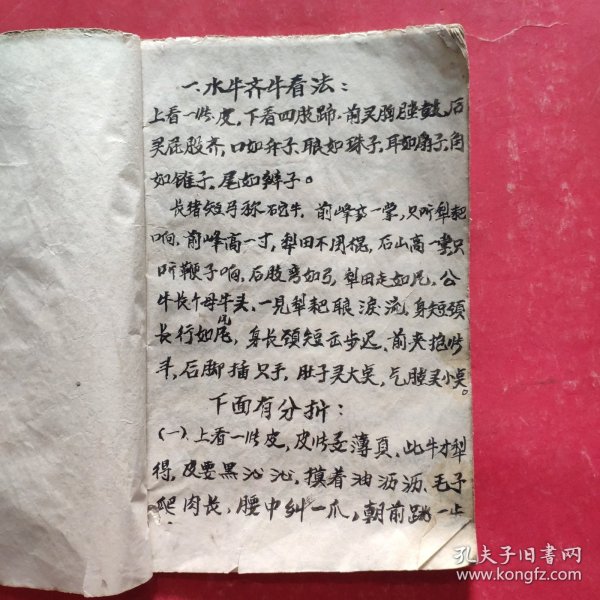 一、水牛齐牛看法：
上看一片皮，下看四肢蹄，前灵胸膛鼓，后
灵屁股齐，口如升子，眼如珠子，耳如扇子，角
如锥子，尾如辫子。
长猪短弓称砣牛，前峰高一掌，只听犁耙
响，前峰高一寸，犁田不用棍，后山高一掌只
听鞭子响，后股弯如弓，犁田走如飞，公
牛长个母牛头，一见犁耙眼泪流，身短颈
长行如飞，身长颈短正步迟，前夹抱
斗，后脚插只手，肚子灵大点，气膛灵小点。
下面有分折：
（一）、上看一片皮，皮片灵薄頁，此牛才犁
得，皮要黑沁沁，摸着油沥沥，毛子
爬肉长，腰中纠一爪，朝前跳一
孔夫子旧书网
www.kongfz.com